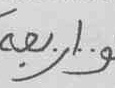 وأربعة